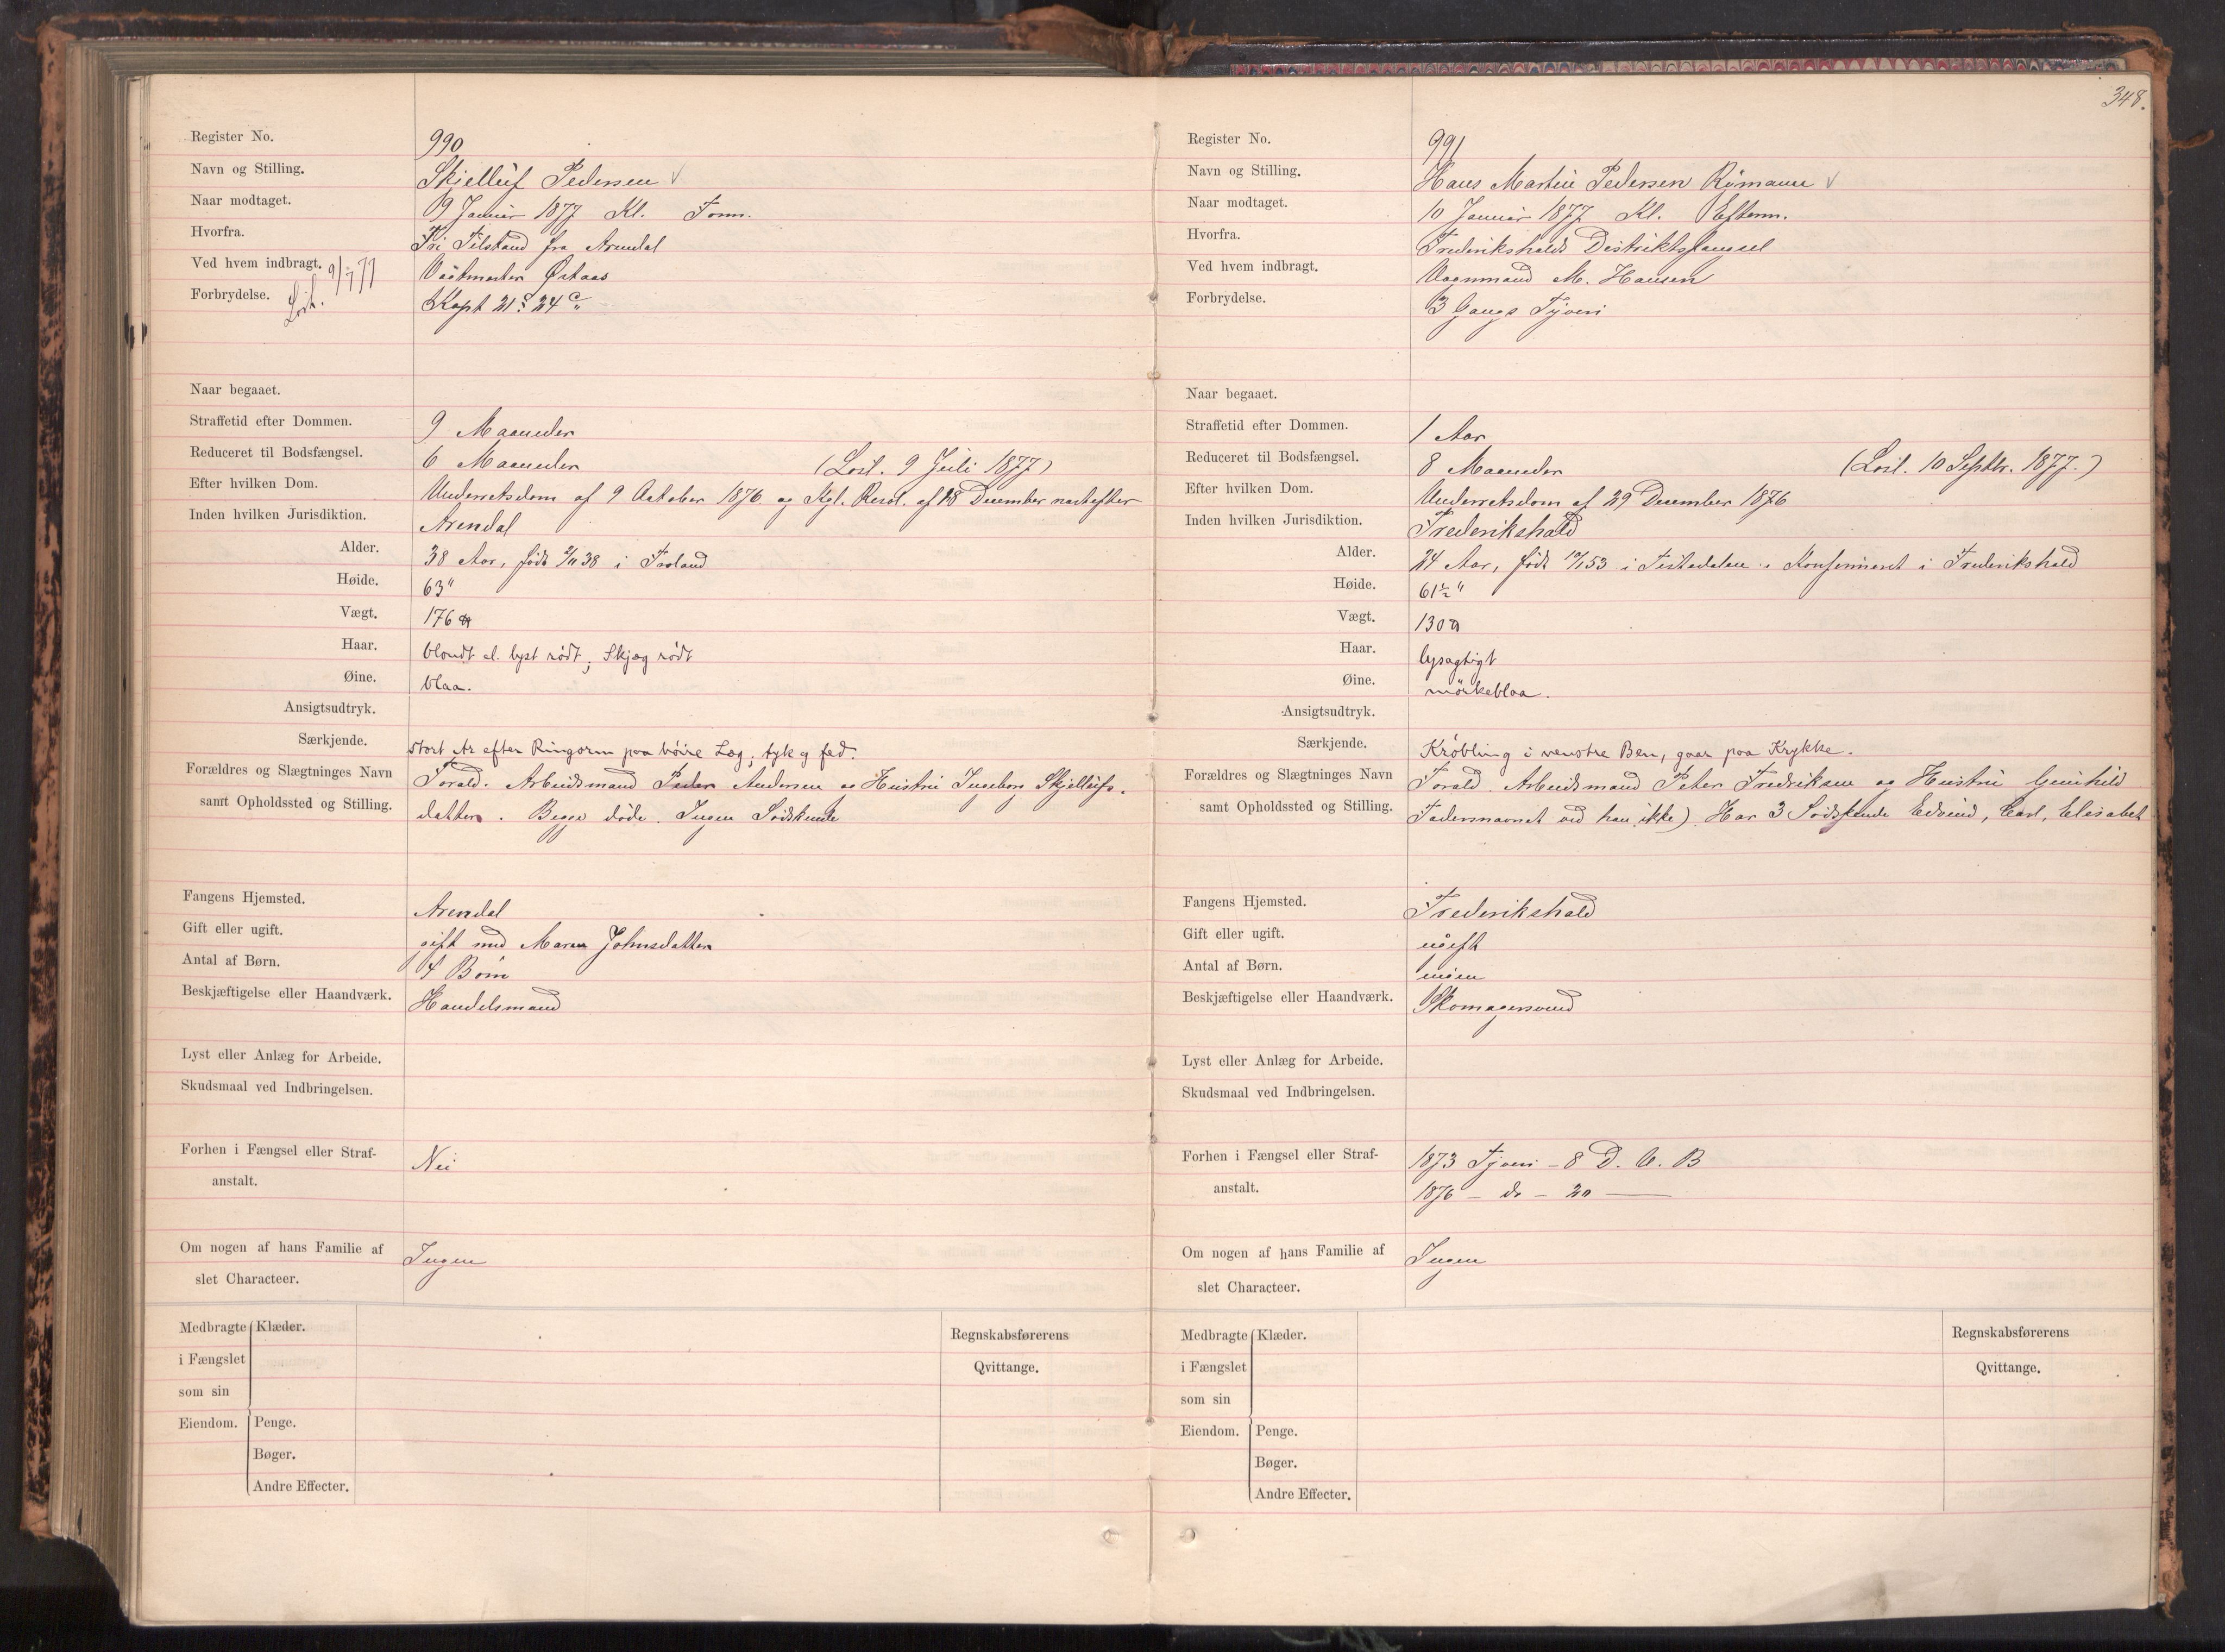 Register No. 990
Navn og Stilling. Skjelluf Pedersen √
Naar modtaget. 9 Januar 1877 Kl. Form.
Hvorfra. Fri Tilstand fra Arendal
Ved hvem indbragt. Østaas
Forbrydelse. Kapt 21 § 24 c
Løsl. 9/7 77
Naar begaaet.
Straffetid efter Dommen. 9 Maaneder
Reduceret til Bodsfængsel. 6 Maaneder (Løsl. 9 Juli 1877)
Efter hvilken Dom. Underretsdom af 9 October 1876 og Kgl. Resol. af 18 December næstefter
Inden hvilken Jurisdiktion. Arendal
Alder. 38 Aar, født 2/11 38 i Froland
Høide. 63"
Vægt. 176 ℔
Haar. blondt el. lyst rødt; Skjæg rødt
Øine. blaa.
Ansigtsudtryk.
Særkjende. stort Ar efter Ringorm paa høire Læg; tyk og fed.
Forældres og Slægtninges Navn Forald. Arbeidsmand Peder Andersen og Hustru Ingeborg Skjellufs-
samt Opholdssted og Stilling. datter. Begge døde. Ingen Sødskende
Fangens Hjemsted. Arendal
Gift eller ugift. gift med Maren Johnsdatter
Antal af Børn. 4 Børn
Beskjæftigelse eller Haandværk. Handelsmand
Lyst eller Anlæg for Arbeide.
Skudsmaal ved Indbringelsen.
Forhen i Fængsel eller Straf- Nei
anstalt.
Om nogen af hans Familie af Ingen
slet Characteer.
Medbragte Klæder. Regnskabsførerens
i Fængslet Qvittange.
som sin
Eiendom. Penge.
Bøger.
Andre Effecter.
348.
Register No. 991
Navn og Stilling. Hans Martin Pedersen Rømann √
Naar modtaget. 10 Januar 1877 Kl. Efterm.
Hvorfra. Frederikshalds Distriktsfængsel
Ved hvem indbragt. Vognmand M. Hansen
Forbrydelse. 3 Gangs Tyveri
Naar begaaet.
Straffetid efter Dommen. 1 Aar
Reduceret til Bodsfængsel. 8 Maaneder (Løsl. 10 Septbr. 1877.)
Efter hvilken Dom. Underretsdom af 29 December 1876
Inden hvilken Jurisdiktion. Frederikshald
Alder. 24 Aar, født 10/1 53 i Tistedalen. Konfirmeret i Frederikshald
Høide. 61½"
Vægt. 130 ℔
Haar. lysagtigt
Øine. mørkeblaa.
Ansigtsudtryk.
Særkjende. Krøbling i venstre Ben, gaar paa Krykke.
Forældres og Slægtninges Navn Forald. Arbeidsmand Peter Fredriksen og Hustru Gunhild
samt Opholdssted og Stilling. Fadersnavnet ved han ikke) Har 3 Sødskende Edvind, Carl, Elisabet
Fangens Hjemsted. Frederikshald
Gift eller ugift. ugift
Antal af Børn. ingen
Beskjæftigelse eller Haandværk. Skomagersvend
Lyst eller Anlæg for Arbeide.
Skudsmaal ved Indbringelsen.
Forhen i Fængsel eller Straf- 1873 Tyveri - 8 D. V. B
anstalt. 1876 - do - 20 —
Om nogen af hans Familie af Ingen
slet Characteer.
Medbragte Klæder. Regnskabsførerens
i Fængslet Qvittange.
som sin
Eiendom. Penge.
Bøger.
Andre Effecter.